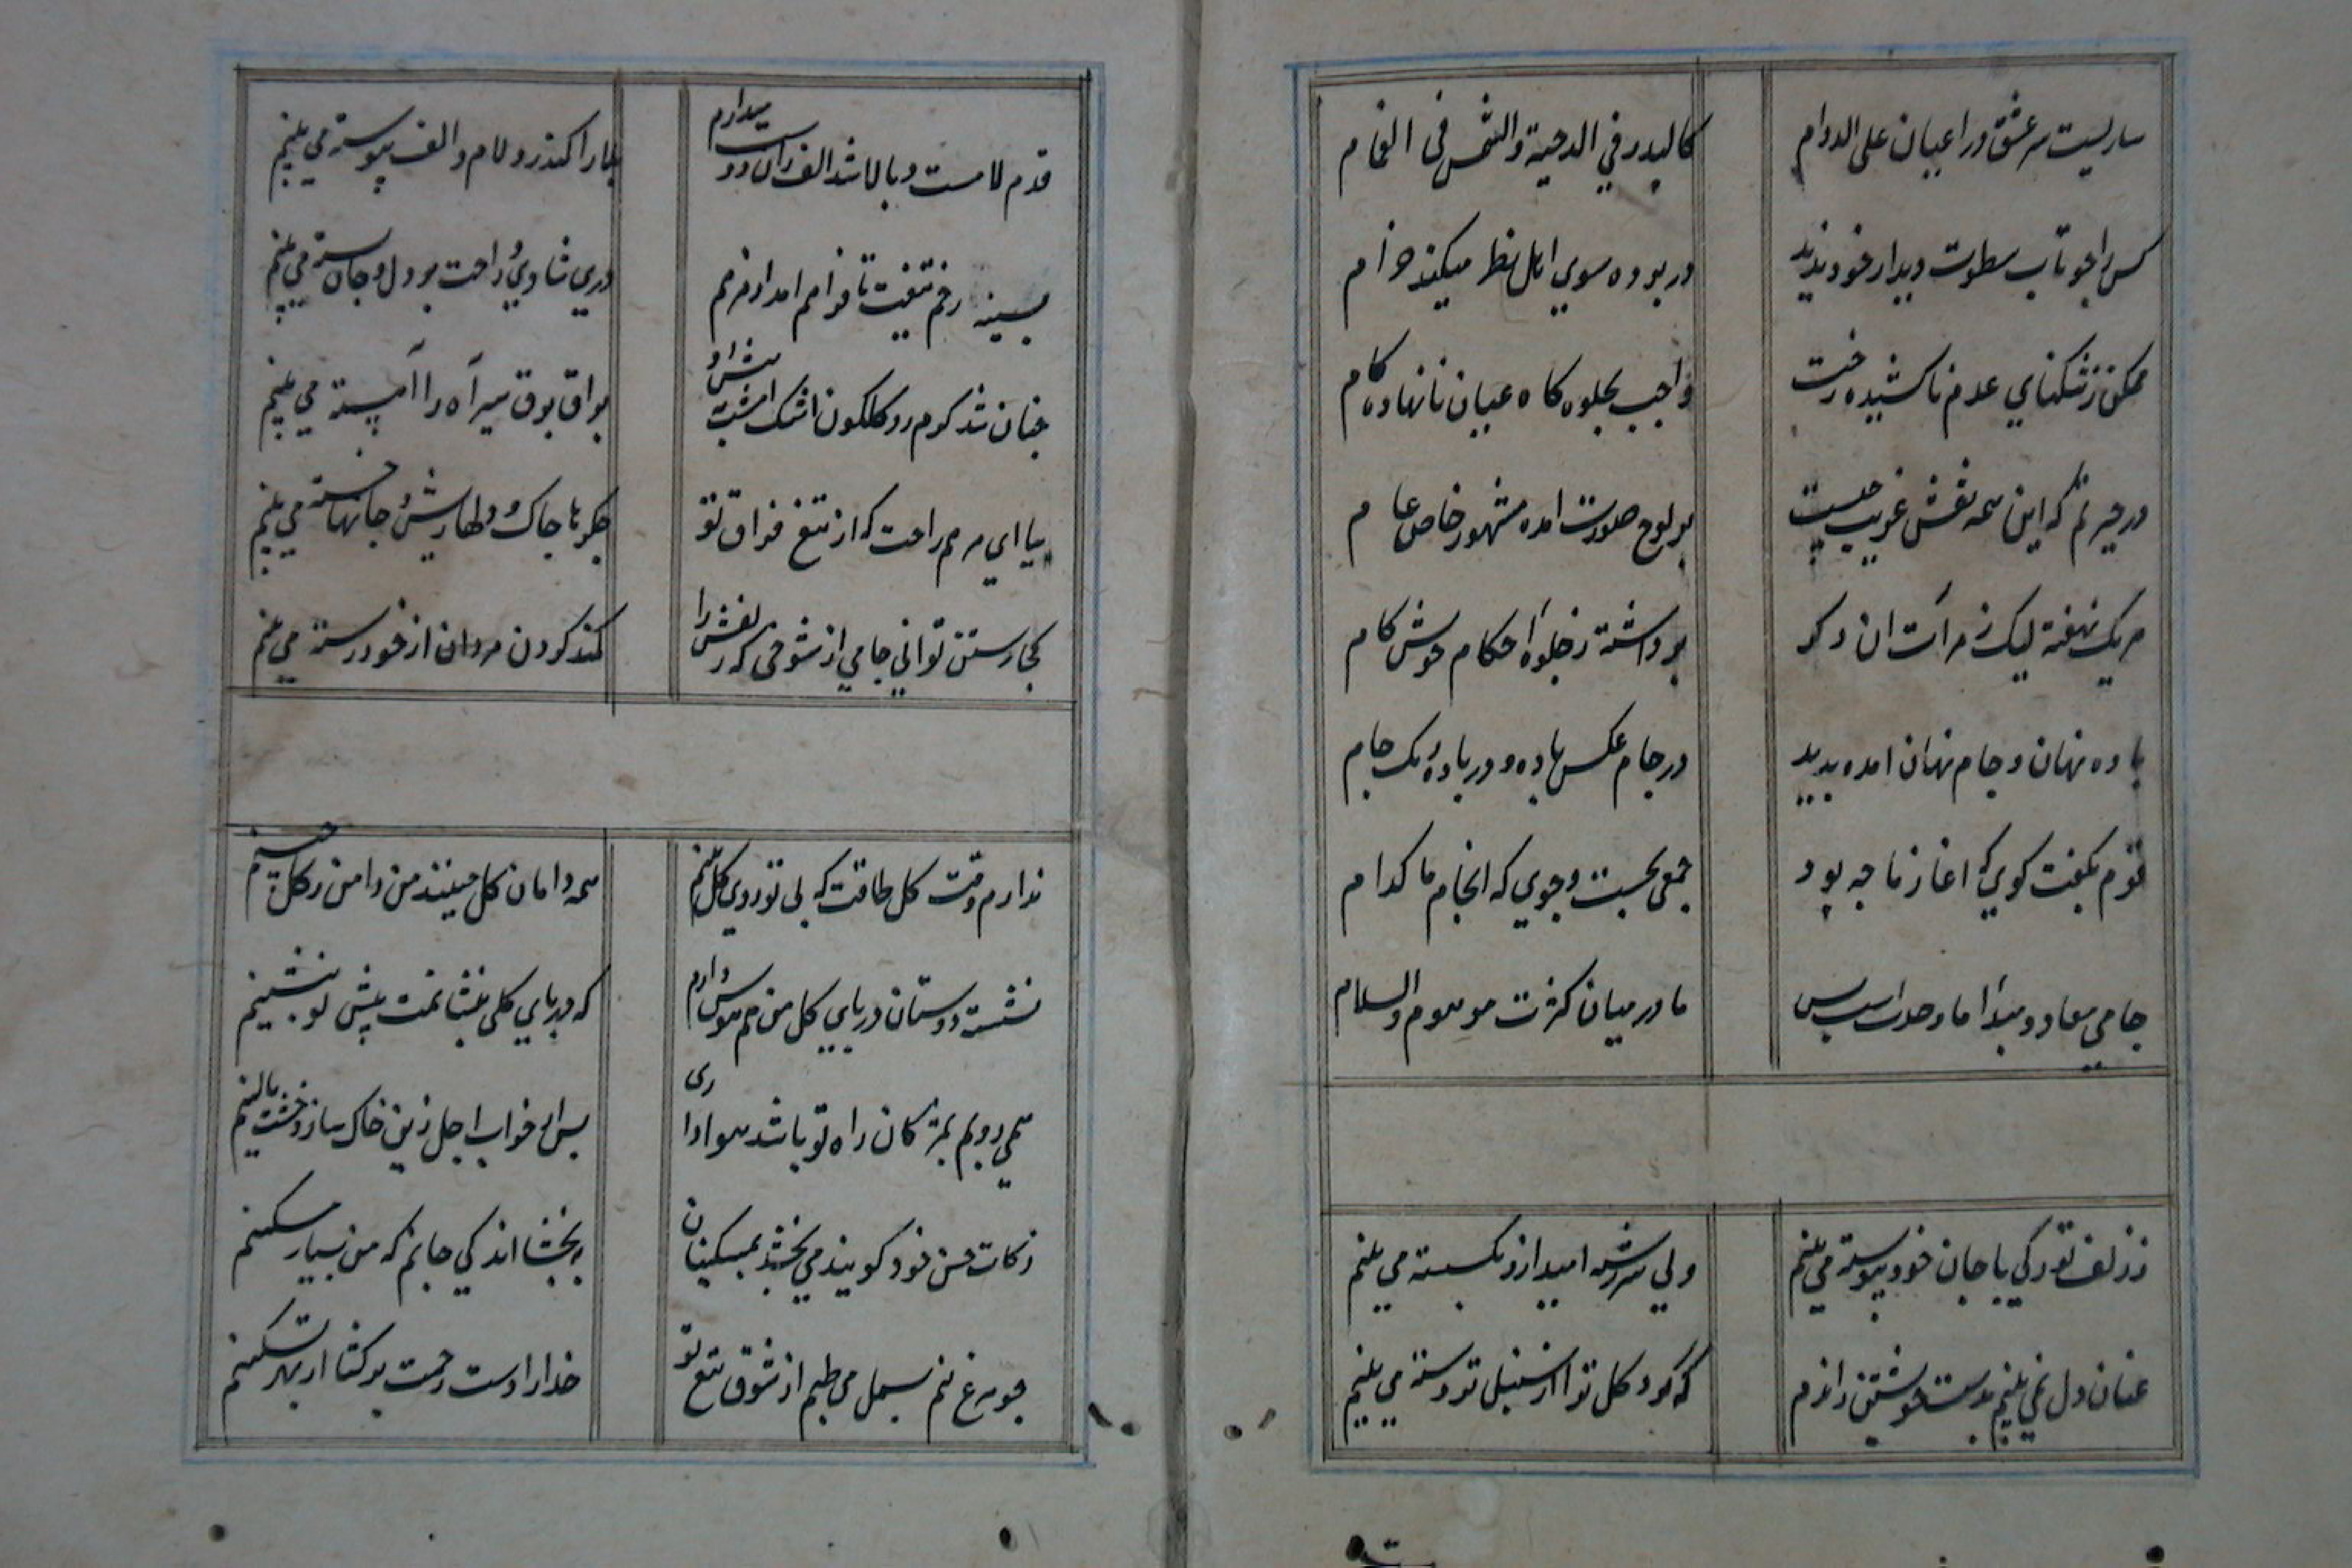 ساریست سر عشق در اعیان علی الدوام
کالبدر فی الدجیة والشمس فی الغمام
کس را چو تاب سطوت دیدار خود ندید
در پرده سوی اهل نظر میکند خرام
ممکن ز تنکنای عدم ناکشیده رخت
واجب بجلوه کاه عیان نانهاده کام
در حیرتم که این همه نقش غریب چیست
بر لوح صورت امده مشهور خاص عام
هر یک نهفته لیک ز مرآت ان دکر
برداشته ز جلوه احکام خویش کام
باده نهان و جام نهان امده بدید
در جام عکس باده و در باده رنک جام
قومی بکفت کوی که اغاز ما چه بود
جمعی بجست وجوی که انجام ما کدام
جامی معاد و مبدا ما وحدتست بس
ما در میان کثرت موهوم والسلام
ز زلف تو رکی با جان خود پیوسته می بینم
ولی سررشته امید ازو بکسسته می بینم
عنان دل نمی بینم بدست خویشتن زاندم
که کرد کل ترا از سنبل تر دسته می بینم
قدم لامست و بالا شد الف زان دو میدارم
بلا را کندرو لام و الف پیوسته می بینم
بسینه زخم تیغت تا فراهم امد از مرهم
دری شادی و راحت بر دل و جان بسته می بینم
چنان شد کرم رو کلکون اشک امشب
براق برق سیر آه را آهسته می بینم
بیا ای مرهم راحت که از تیغ فراق تو
جکرها چاک و دلها ریش و جانها خسته می بینم
کجا رستن توانی جامی از شوخی که زلفش را
کمند کردن مردان از خود رسته می بینم
ندارم وقت کل طاقت که بی تو روی کل بینم
همه دامان کل چینند من دامن ز کل چینم
نشسته دوستان در پای کل من هم هوس دارم
که در پای کلی بنشانمت پیش تو بنشینم
همی روبم بمژکان راه تو باشد سواداری
پس از خواب اجل زین خاک سازد خشت بالینم
زکات حسن خود کویند می بخشد بمسکینان
ببخشا اندکی جانم که من بسیار مسکینم
چو مرغ نیم بسمل می طپم از شوق تیغ تو
خدارا دست رحمت برکشا از بهر تسکینم